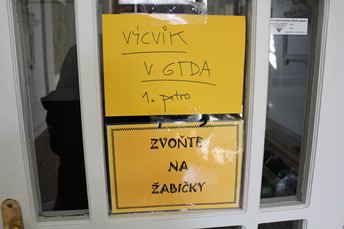 VÝCVIK
V GTDA
1. patro
ZVOŇTE
NA
ŽABIČKY